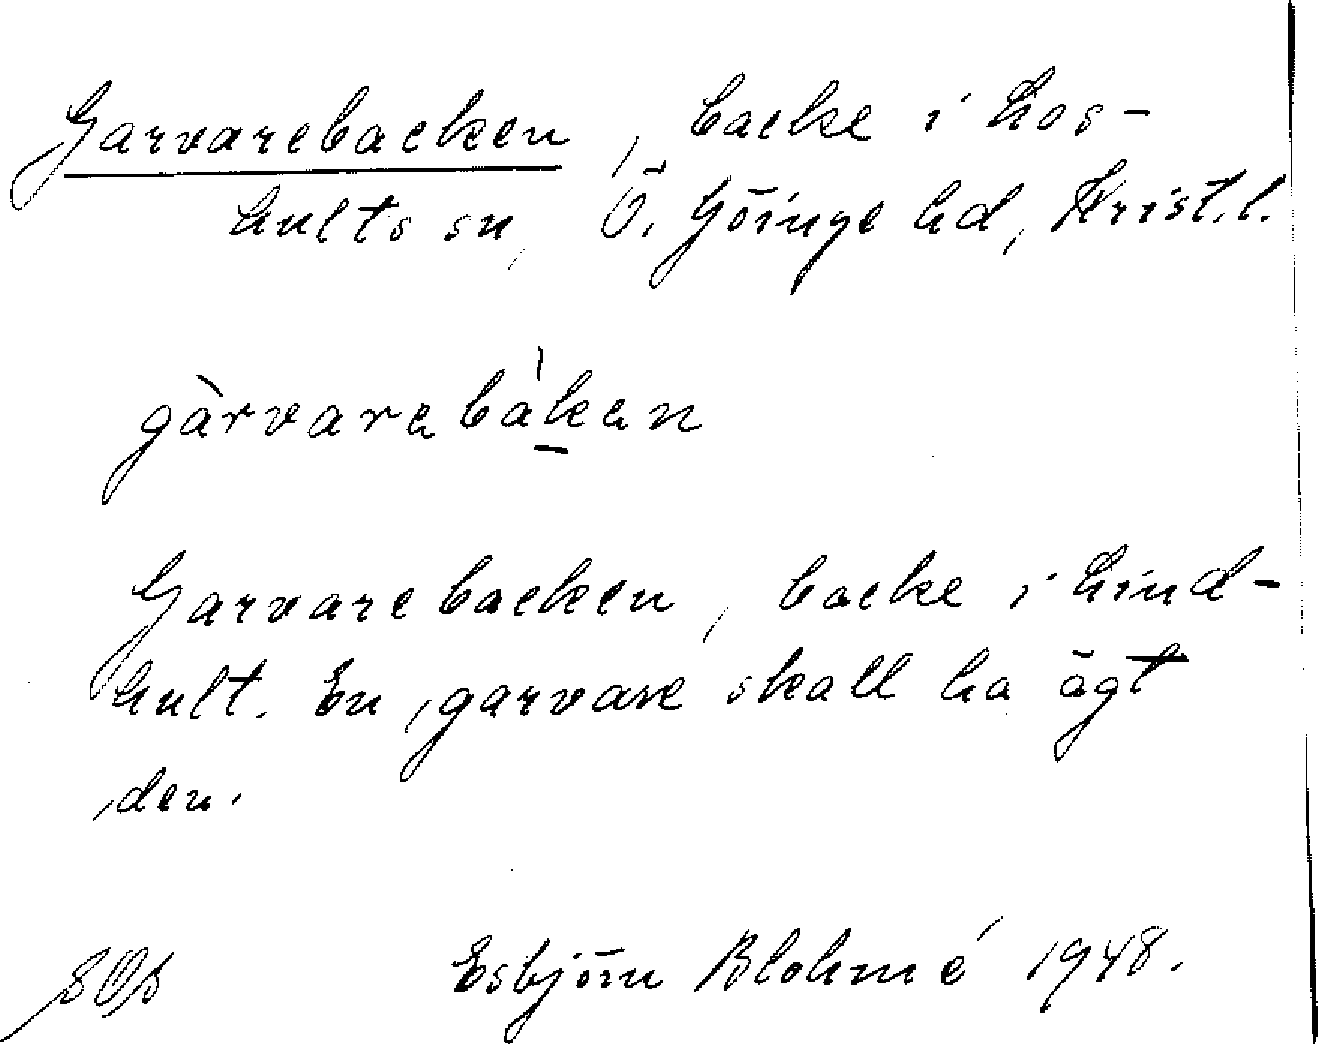 Garvarebacken, backe i Los-
hults sn, Ö. Göinge hd, Krist. l.
gàrvarabàkan
Garvarebacken, backe i Lind-
hult. En garvare skall ha ägt
den.
Esbjörn Blohmé 1948.